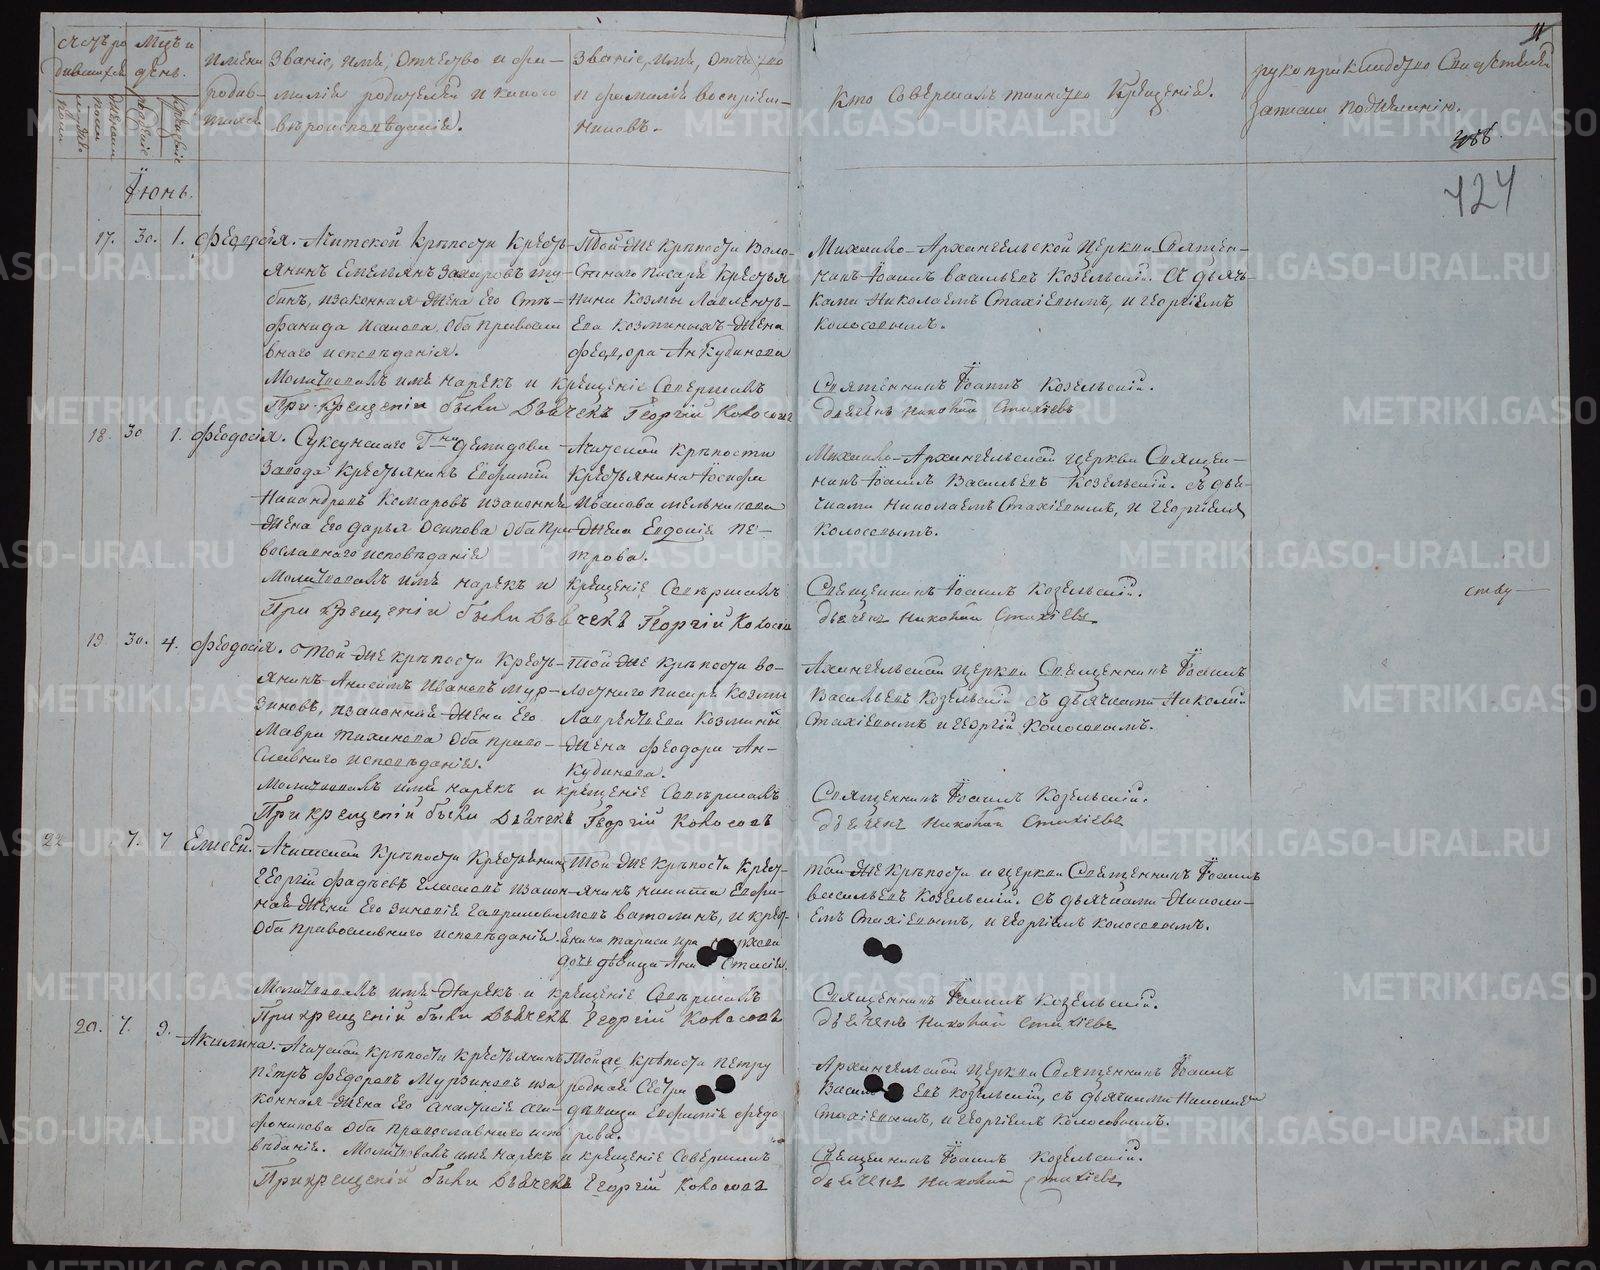 Счетъ ро
дившихся
Мѣсяцъ и
день.
мужеска
пола
женска
пола
рожденіе
крещеніе
Имена
родив-
шихся
Званіе, имя, отчество и фа-
милія родителей и какого
вѣроисповѣданія.
Званіе, имя, отчество
и фамилія воспріем-
никовъ.
Кто совершалъ таинство крещенія.
рукоприкладство свидѣтелей
записи по желанію.
11
424
Іюнь.
17. 30. 1. Феодосія.
Ачитской крѣпости кресть-
янинъ Емельянъ Захаровъ
законная жена его Сте-
фанида Исакова оба правосла
внаго исповѣданія.
Той же крѣпости воло-
стнаго писаря крестья
нина Козмы Лаврентье-
ва Козминыхъ жена
Феодора Анкудинова
Михаило-Архангельской церкви священ-
никъ Іоаннъ Васильевъ Козельскій. съ дьяч-
ками Николаемъ Стахіевымъ, и Георгіемъ
Колосовымъ.
Молитвовалъ имя нарекъ и крещеніе совершалъ
Священникъ Іоаннъ Козельскій.
При крещеніи были дьячекъ Георгій Колосовъ
дьячекъ Николай Стахіевъ
18. 30 1. Феодосія.
Суксунскаго Г-на Демидова
завода крестьянинъ Евфимій
Никандровъ Комаровъ и законная
жена его Дарья Осипова оба пра-
вославнаго исповѣданія
Ачитской крѣпости
крестьянина Іосифа
Исакова Мельникова
жена Евдокія Пе-
трова.
Михаило-Архангельской церкви священ-
никъ Іоаннъ Васильевъ Козельскій. съ дья-
чками Николаемъ Стахіевымъ, и Георгіемъ
Колосовымъ.
Молитвовалъ имя нарекъ и крещеніе совершалъ
Священникъ Іоаннъ Козельскій.
При крещеніи были дьячекъ Георгій Колосовъ
дьячекъ Николай Стахіевъ
19 30. 4. Феодосія.
Той же крѣпости кресть-
янинъ Анисимъ Ивановъ Мур-
зиновъ, и законная жена его
Мавра Тихонова оба право-
славнаго исповѣданія.
Той же крѣпости во-
лостнаго писаря Козмы
Лаврентьева Козминыхъ
жена Феодора Ан-
кудинова.
Архангельской церкви священникъ Іоаннъ
Васильевъ Козельскій съ дьячками Николай
Стахіевымъ и Георгій Колосовымъ.
Молитвовалъ имя нарекъ и крещеніе совершалъ
Священникъ Іоаннъ Козельскій.
При крещеніи были дьячекъ Георгій Колосовъ
дьячекъ Николай Стахіевъ
22 7. 7 Елисей.
Ачитской крѣпости крестьянинъ
Георгій Фадѣевъ и закон-
ная жена его Зиновія Гаврилова
оба православнаго исповѣданія.
Той же крѣпости крест-
янинъ Никита Евфи-
мовъ Ватолинъ, и крест-
дочь дѣвица Анастасія.
Той же крѣпости и церкви священникъ Іоаннъ
Васильевъ Козельскій. съ дьячками Никола-
емъ Стахіевымъ, и Георгіемъ Колосовымъ.
Молитвовалъ имя нарекъ и крещеніе совершалъ
Священникъ Іоаннъ Козельскій.
При крещеніи были дьячекъ Георгій Колосовъ
дьячекъ Николай Стахіевъ
20. 7. 9. Акилина.
Ачитской крѣпости крестьянинъ
Петръ Федоровъ Мурзиновъ и за
конная жена его Анастасія Ага-
фоникова оба православнаго испо
вѣданія.
Той же крѣпости Петру
родная сестра
дѣвица Евфимія Федо
рова.
Архангельской церкви священникъ Іоаннъ
Васильевъ Козельскій, съ дьячками Николаемъ
Стахіевымъ, и Георгіемъ Колосовымъ.
Молитвовалъ имя нарекъ и крещеніе совершалъ
Священникъ Іоаннъ Козельскій.
При крещеніи были дьячекъ Георгій Колосовъ
дьячекъ Николай Стахіевъ
METRIKI.GASO-URAL.RU